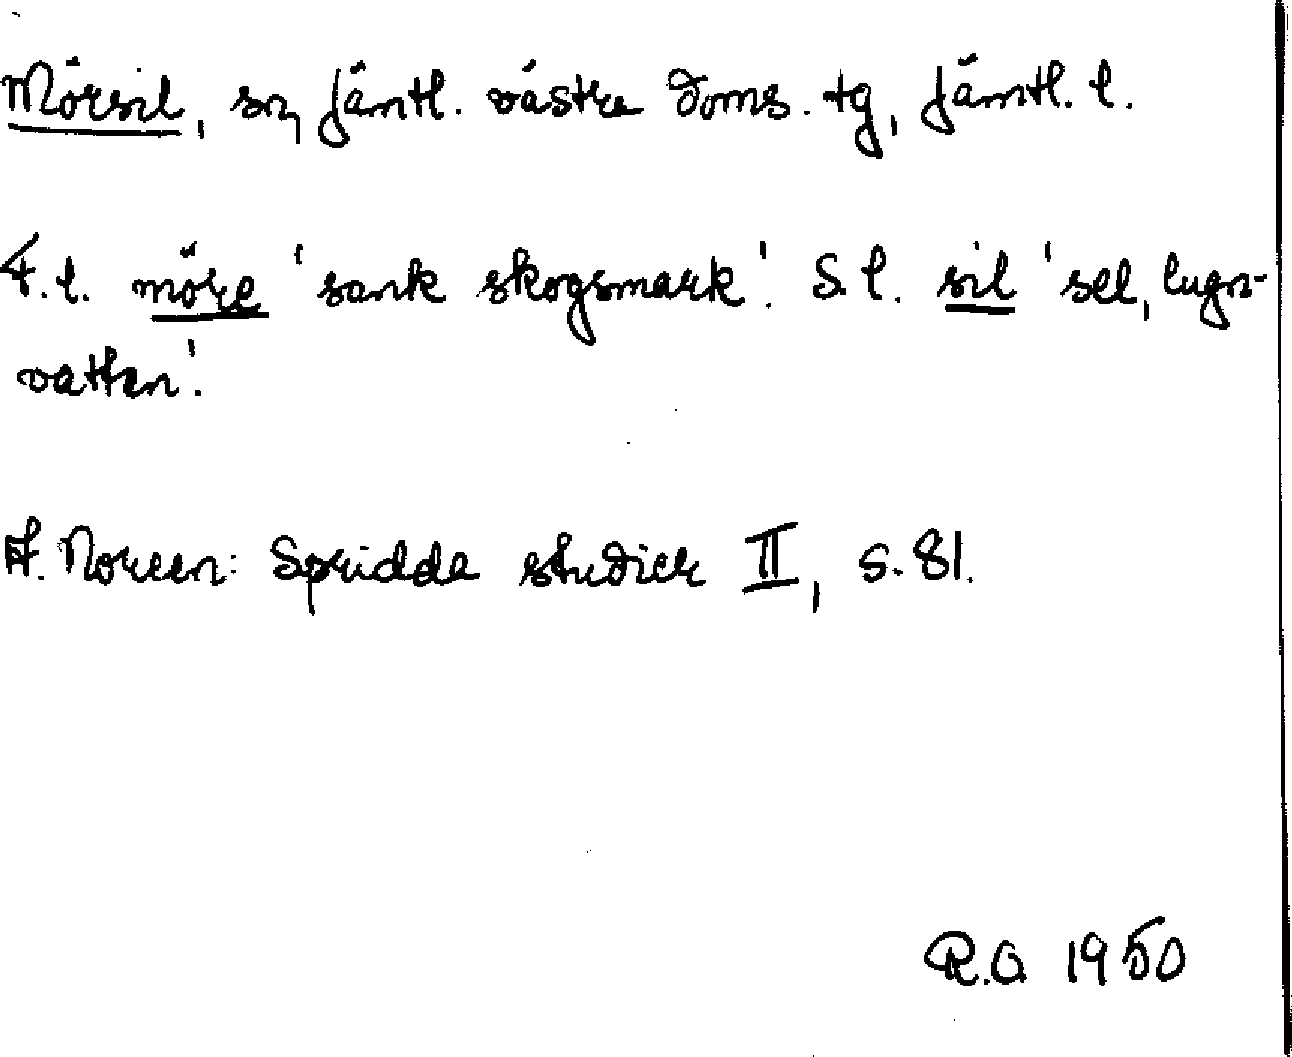 Mörsil, sn, Jämtl. västra doms. tg, Jämtl. l.
F.l. möre 'sank skogsmark'. S.l. sil 'sel, lugn-
vatten'.
A. Noreen: Spridda studier II, s. 81.
R.O 1950